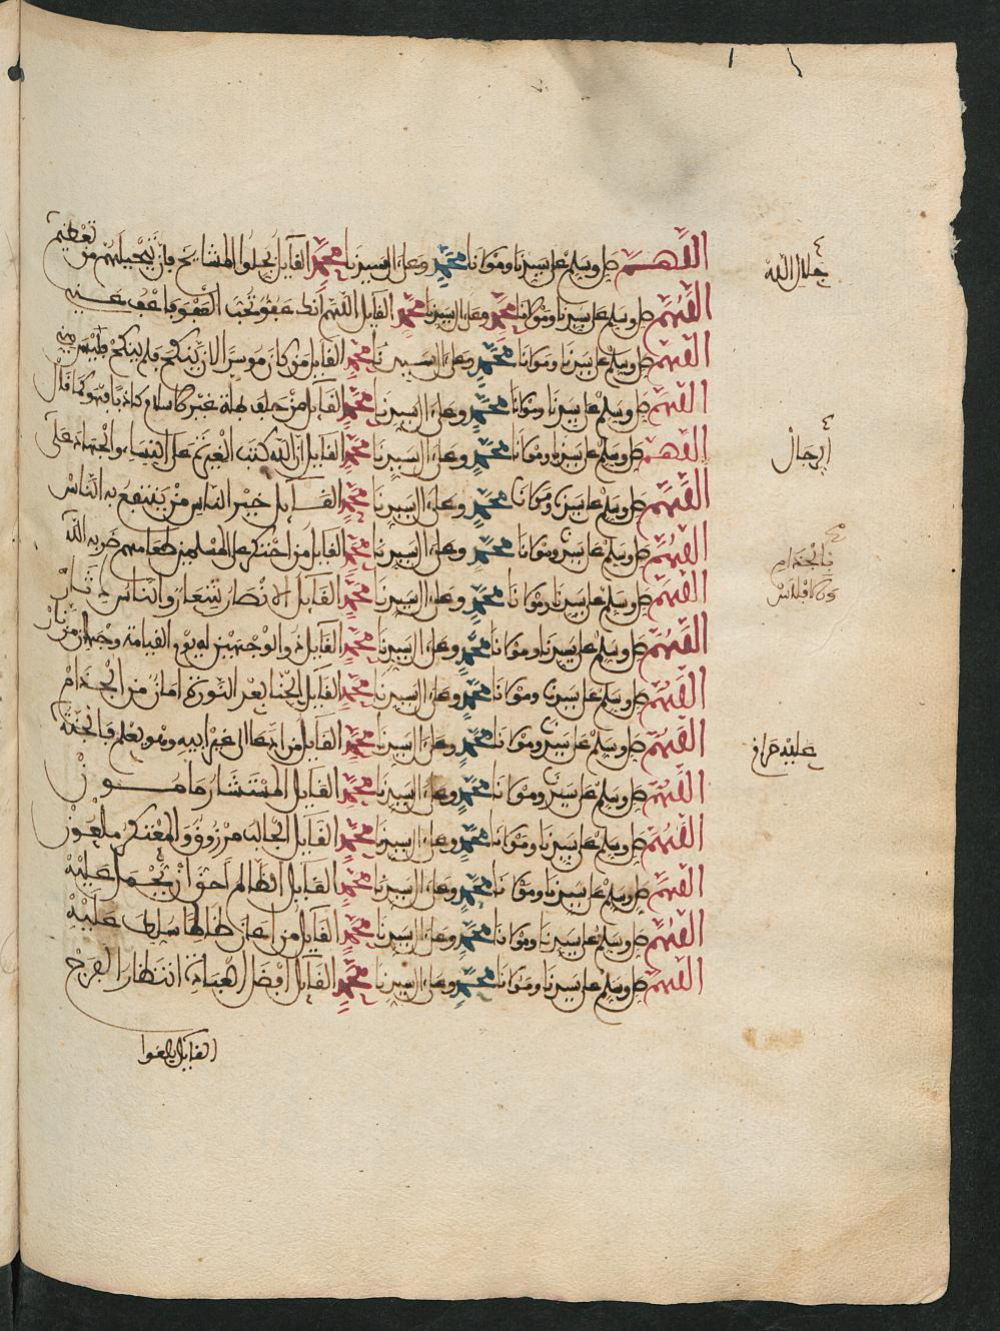 اللهم صل وسلم على سيدنا ومولانا محمد وعلى ال سيدنا محمد القايل بجلوا المشايخ فإن تبجيلهم من تعظيم
جلال الله
اللهم صل وسلم على سيدنا ومولانا محمد وعلى ال سيدنا محمد القايل اللهم انك عفو تحب العفو فاعف عني
اللهم صل وسلم على سيدنا ومولانا محمد وعلى ال سيدنا محمد القايل من كان موسرا لان ينكح فلم ينكح فليس مني
اللهم صل وسلم على سيدنا ومولانا محمد وعلى ال سيدنا محمد القايل من حلف بملة غير الاسلام كاذبا فهو كما قال
اللهم صل وسلم على سيدنا ومولانا محمد وعلى ال سيدنا محمد القايل ان الله كتب الغيرة على النساء والجهاد على
الرجال
اللهم صل وسلم على سيدنا ومولانا محمد وعلى ال سيدنا محمد القايل خير الناس من ينتفع به الناس
اللهم صل وسلم على سيدنا ومولانا محمد وعلى ال سيدنا محمد القايل من احتكر على المسلمين طعامهم ضربه الله
بالجذام
والافلاس
اللهم صل وسلم على سيدنا ومولانا محمد وعلى ال سيدنا محمد القايل الانصار شعار والناس دثار
اللهم صل وسلم على سيدنا ومولانا محمد وعلى ال سيدنا محمد القايل ذو الوجهين له يوم القيامة وجهان من نار
اللهم صل وسلم على سيدنا ومولانا محمد وعلى ال سيدنا محمد القايل الحنا بعد النورة امان من الجذام
اللهم صل وسلم على سيدنا ومولانا محمد وعلى ال سيدنا محمد القايل من ادعا الى غير ابيه وهو يعلم فالجنة
عليه حرام
اللهم صل وسلم على سيدنا ومولانا محمد وعلى ال سيدنا محمد القايل المستشار مامون
اللهم صل وسلم على سيدنا ومولانا محمد وعلى ال سيدنا محمد القايل الجالب مرزوق والمحتكر ملعون
اللهم صل وسلم على سيدنا ومولانا محمد وعلى ال سيدنا محمد القايل الظالم احق ان يحمل عليه
اللهم صل وسلم على سيدنا ومولانا محمد وعلى ال سيدنا محمد القايل من اعان ظالما سلط عليه
اللهم صل وسلم على سيدنا ومولانا محمد وعلى ال سيدنا محمد القايل افضل العبادة انتظار الفرج
القايل بلغوا